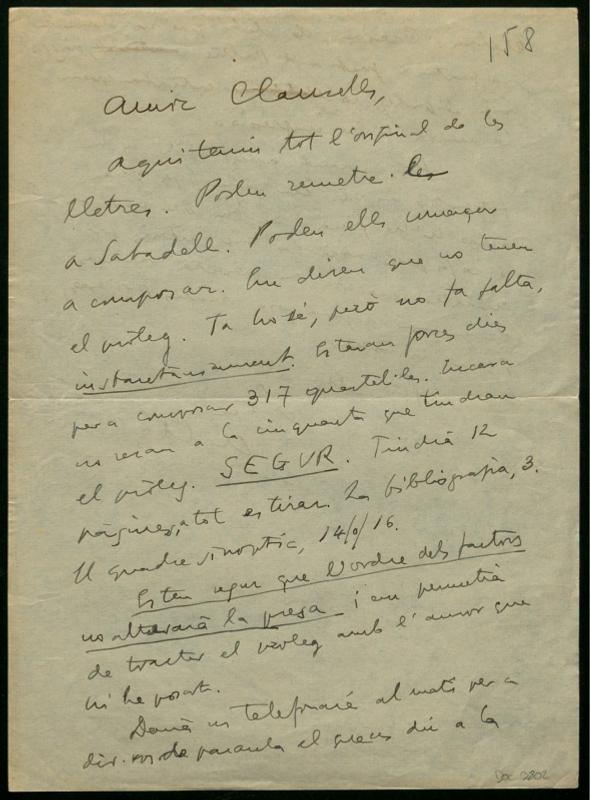 158
Amic Clausells,
Aquí teniu tot l'original de les
lletres. Poden remetre-les
a Sabadell. Poden ells començar
a composar. Em diren que no tenen
el pròleg. Ja ho sé, però no fa falta,
instantàniament. Estaran forces dies
per a composar 317 quartelles. Encara
no seran a la cinquanta que tindran
el pròleg. SEGUR. Tindrà 12
pàgines, a tot estirar. La bibliografia, 3.
El quadre sinòptic, 14 o 16.
Esteu segur que l'ordre dels factors
no alterarà la presa i em permetrà
de tractar el pròleg amb l'amor que
hi he posat.
Demà us telefonaré al matí per a
dir-vos de paraula el que us diu a la
Doc 2802